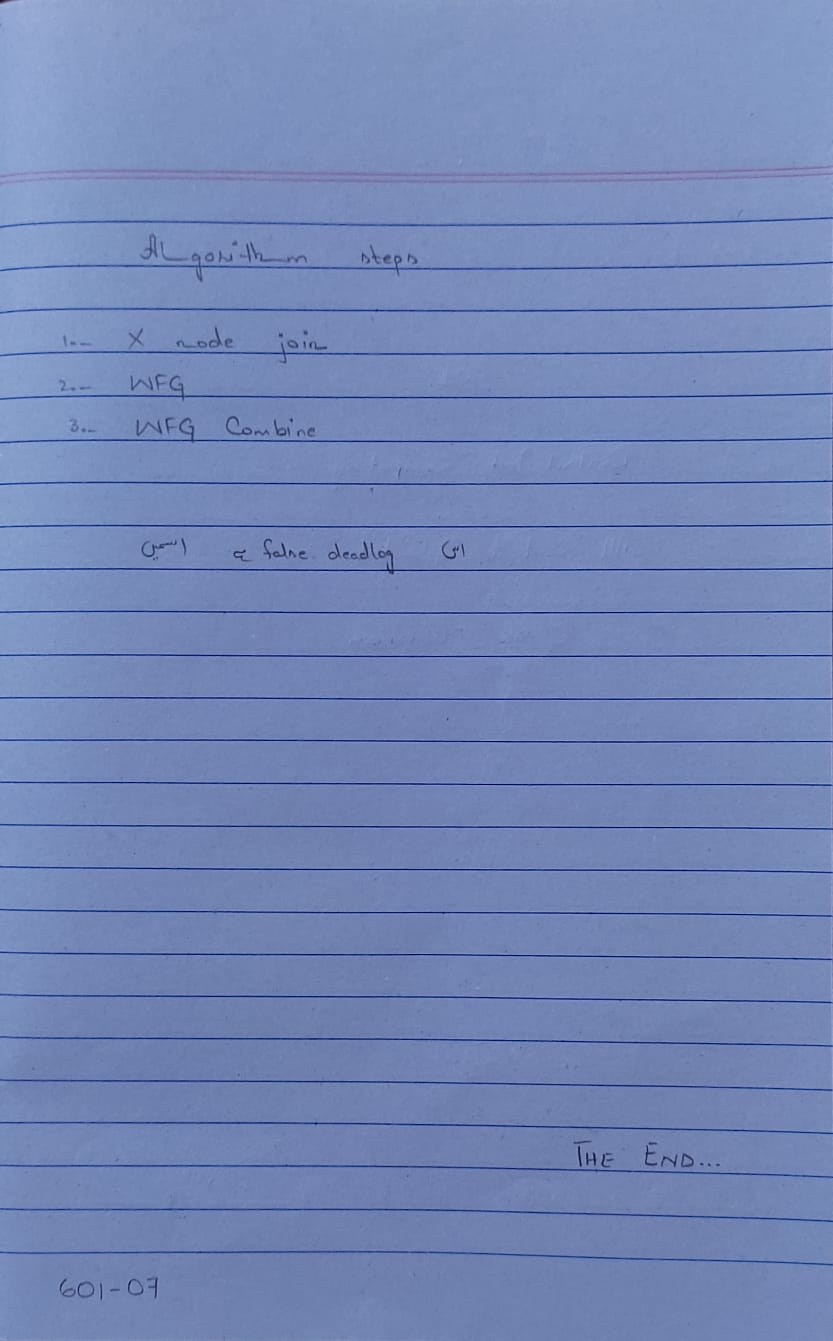 Algorithm steps
1.- X node join
2.- WFG
3.- WFG Combine
false deadlog
THE END...
601-07